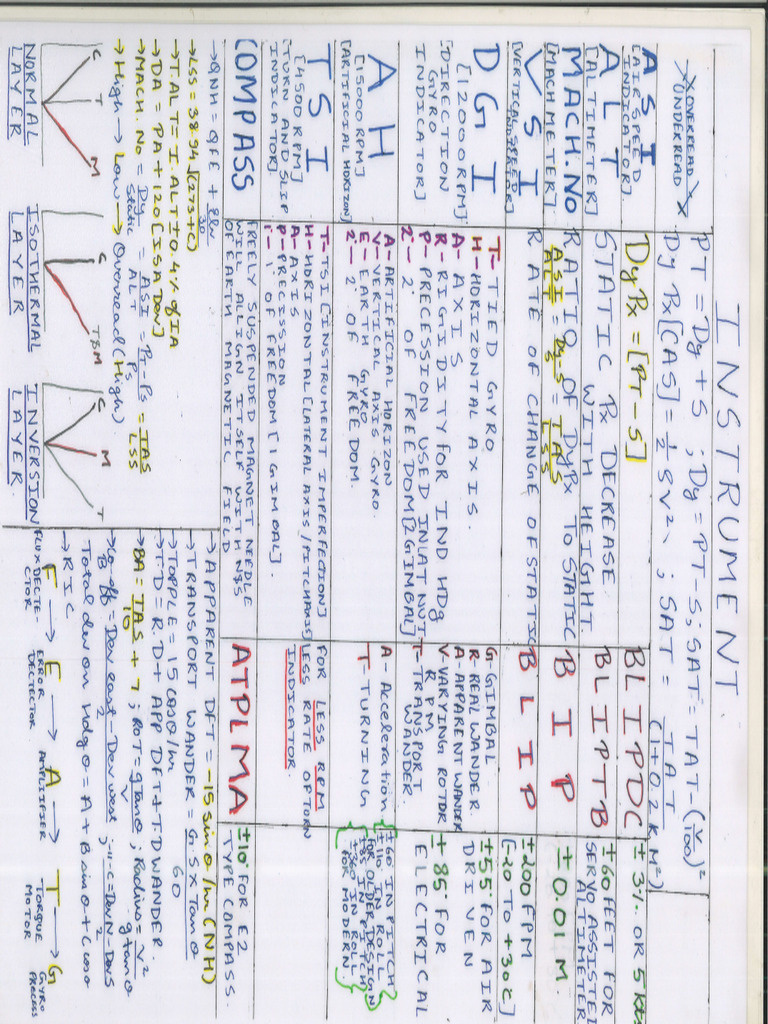 INSTRUMENT
OVERREAD
UNDERREAD
PT = Dy + S ; Dy = PT - S ; SAT = TAT - (V/100)²
Dy Px [CAS] = 1/2 ρV² ; SAT = TAT/(1+0.2 K M²)
ASI
[AIR SPEED
INDICATOR]
Dy Px = [PT - S]
BLIPDC
± 3% OR 5 kts
ALT
[ALTIMETER]
STATIC Px DECREASE
WITH HEIGHT
BLIPTB
± 60 FEET FOR
SERVO ASSISTED
ALTIMETER
MACH.NO
[MACHMETER]
RATIO OF Dy Px TO STATIC
ASI/ALT = Dy-S/S = TAS/LSS
BIP
± 0.01 M.
VSI
[VERTICAL SPEED
RATE OF CHANGE OF STATIC
BLIP
±200 FPM
[-20 TO +30°C]
DGI
[12000RPM]
[DIRECTION
GYRO
INDICATOR]
T- TIED GYRO
H- HORIZONTAL AXIS.
A- AXIS
R- RIGIDITY FOR IND HDG
P- PRECESSION USED IN LAT NUT
2- 2° OF FREEDOM [2GIMBAL]
G- GIMBAL
R- REAL WANDER.
A- APPARENT WANDER
V- VARYING ROTOR
RPM
T- TRANSPORT
WANDER
±55° FOR AIR
DRIVEN
± 85° FOR
ELECTRICAL
AH
[15000 RPM]
[ARTIFICIAL HORIZON]
A- ARTIFICIAL HORIZON
V- VERTICAL AXIS GYRO.
E- EARTH GYRO
2- 2° OF FREEDOM.
A- Acceleration
T- TURNING
±60 IN PITCH
±110 IN ROLL
FOR OLDER DESIGN
±85 IN PITCH
±360 IN ROLL
FOR MODERN
TSI
[4500 RPM]
[TURN AND SLIP
INDICATOR]
T- TSI [INSTRUMENT IMPERFECTION]
H- HORIZONTAL [LATERAL AXIS/PITCH AXIS]
A- AXIS
P- PRECISSION
1- 1° OF FREEDOM [1 GIMBAL].
FOR LESS RPM
LESS RATE OF TURN
INDICATOR.
COMPASS
FREELY SUSPENDED MAGNET NEEDLE
WILL ALIGN ITSELF WITH N&S
OF EARTH MAGNETIC FIELD
ATPLMA
±10° FOR E2
TYPE COMPASS.
→ QNH = QFE + Elv/30
→ LSS = 38.94 √(273+C)
→ T.ALT = I.ALT ± 0.4% of IA
→ DA = PA + 120 [ISA Dev]
→ MACH. No = Dy/Static = ASI/ALT = PT-PS/PS = TAS/LSS
→ High → Low → Overread (High)
C T M
NORMAL
LAYER
C T&M
ISOTHERMAL
LAYER
C M T
INVERSION
LAYER.
→ APPARENT DFT = -15 sin θ/hr (NH)
→ TRANSPORT WANDER = G.S X Tan θ/60
→ TOPPLE = 15 cos θ/hr
→ T.D = R.D + APP DFT + T.D WANDER.
→ BA = TAS/10 + 7 ; ROT = g Tan θ/V ; Radius = V²/g tan θ
→ Coeff B = Dev east - Dev west/2 ; C = Dev N - Dev S/2
Total dev on Hdg θ = A + B sin θ + C cos θ
→ RIC
F → E → A → T → G
FLUX DETE-
CTOR
ERROR
DECTECTOR.
AMPLIFIER
TORQUE
MOTOR
GYRO